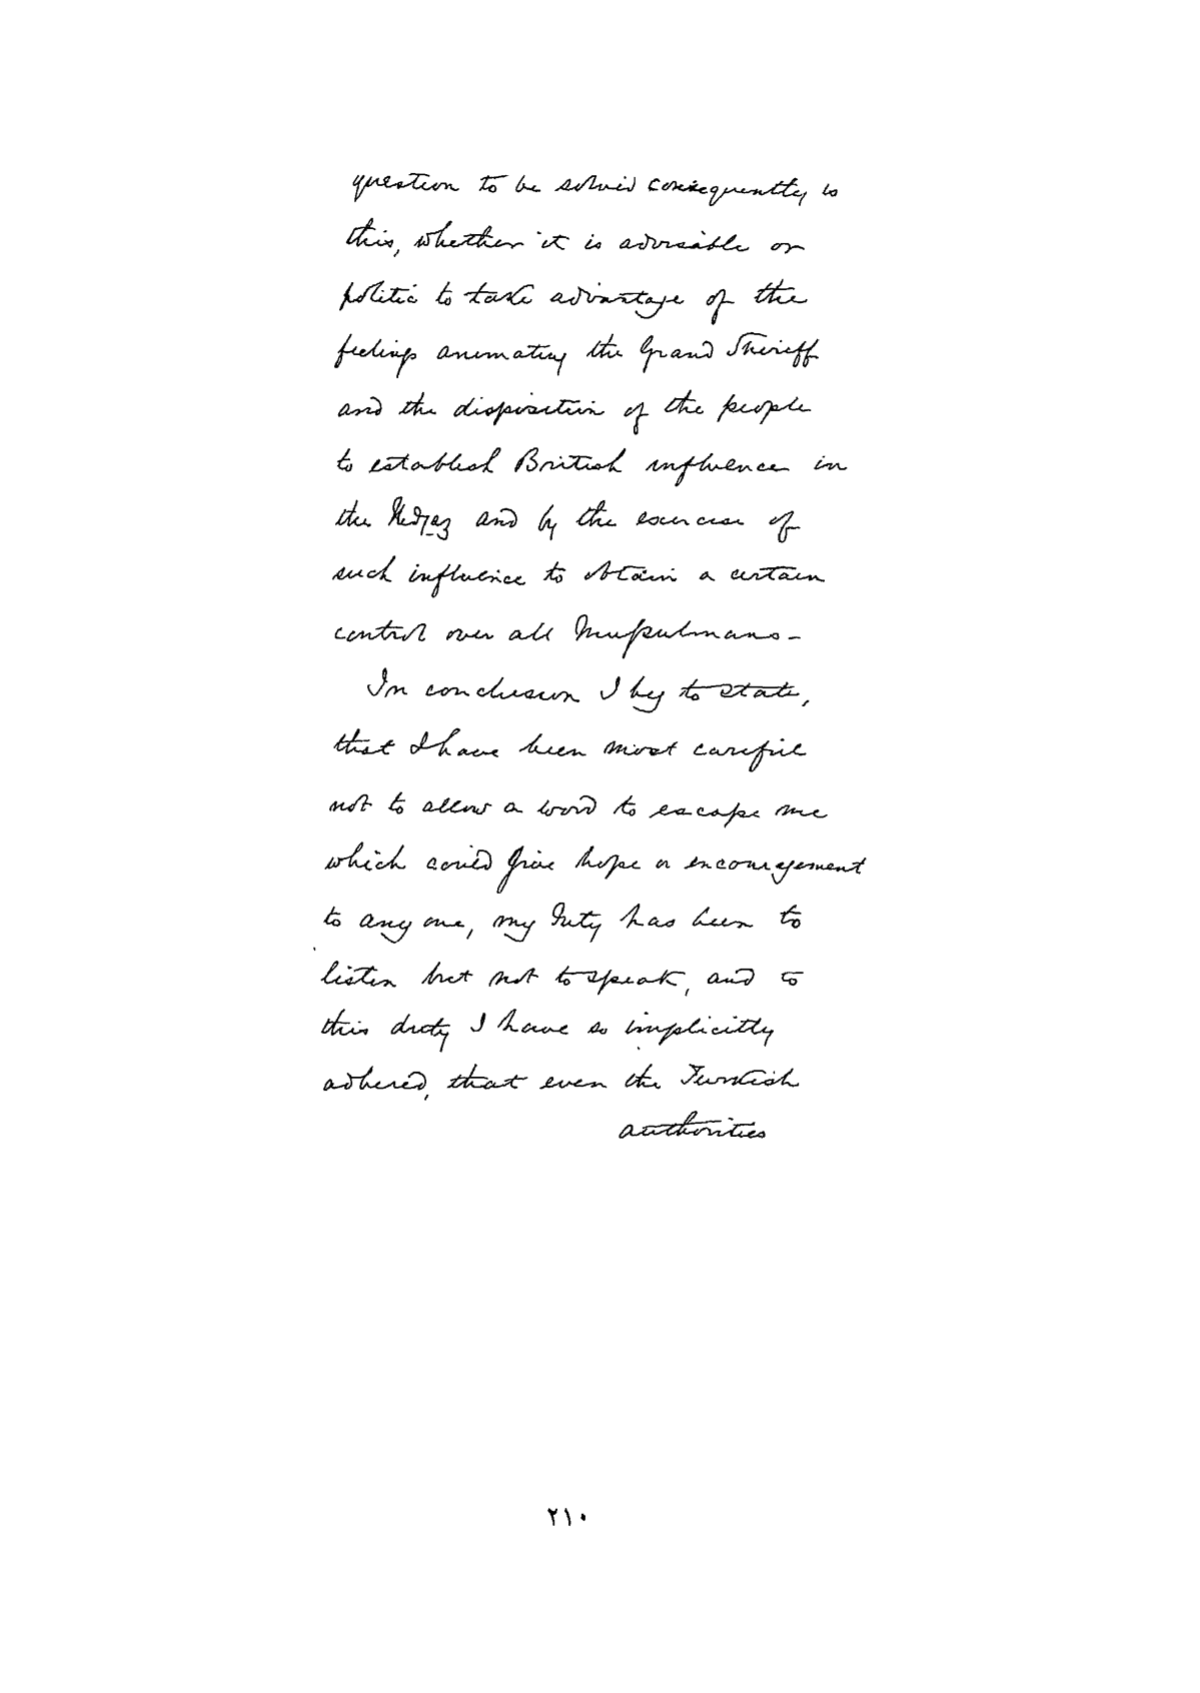 question to be solved consequently is
this, whether it is advisable or
politic to take advantage of the
feelings animating the Grand Sheriff
and the disposition of the people
to establish British influence in
the Hedjaz and by the exercise of
such influence to obtain a certain
control over all Mussulmans -
In conclusion I beg to state,
that I have been most careful
not to allow a word to escape me
which could give hope or encouragement
to any one, my duty has been to
listen but not to speak, and to
this duty I have so implicitly
adhered, that even the Turkish
authorities
٢١٠